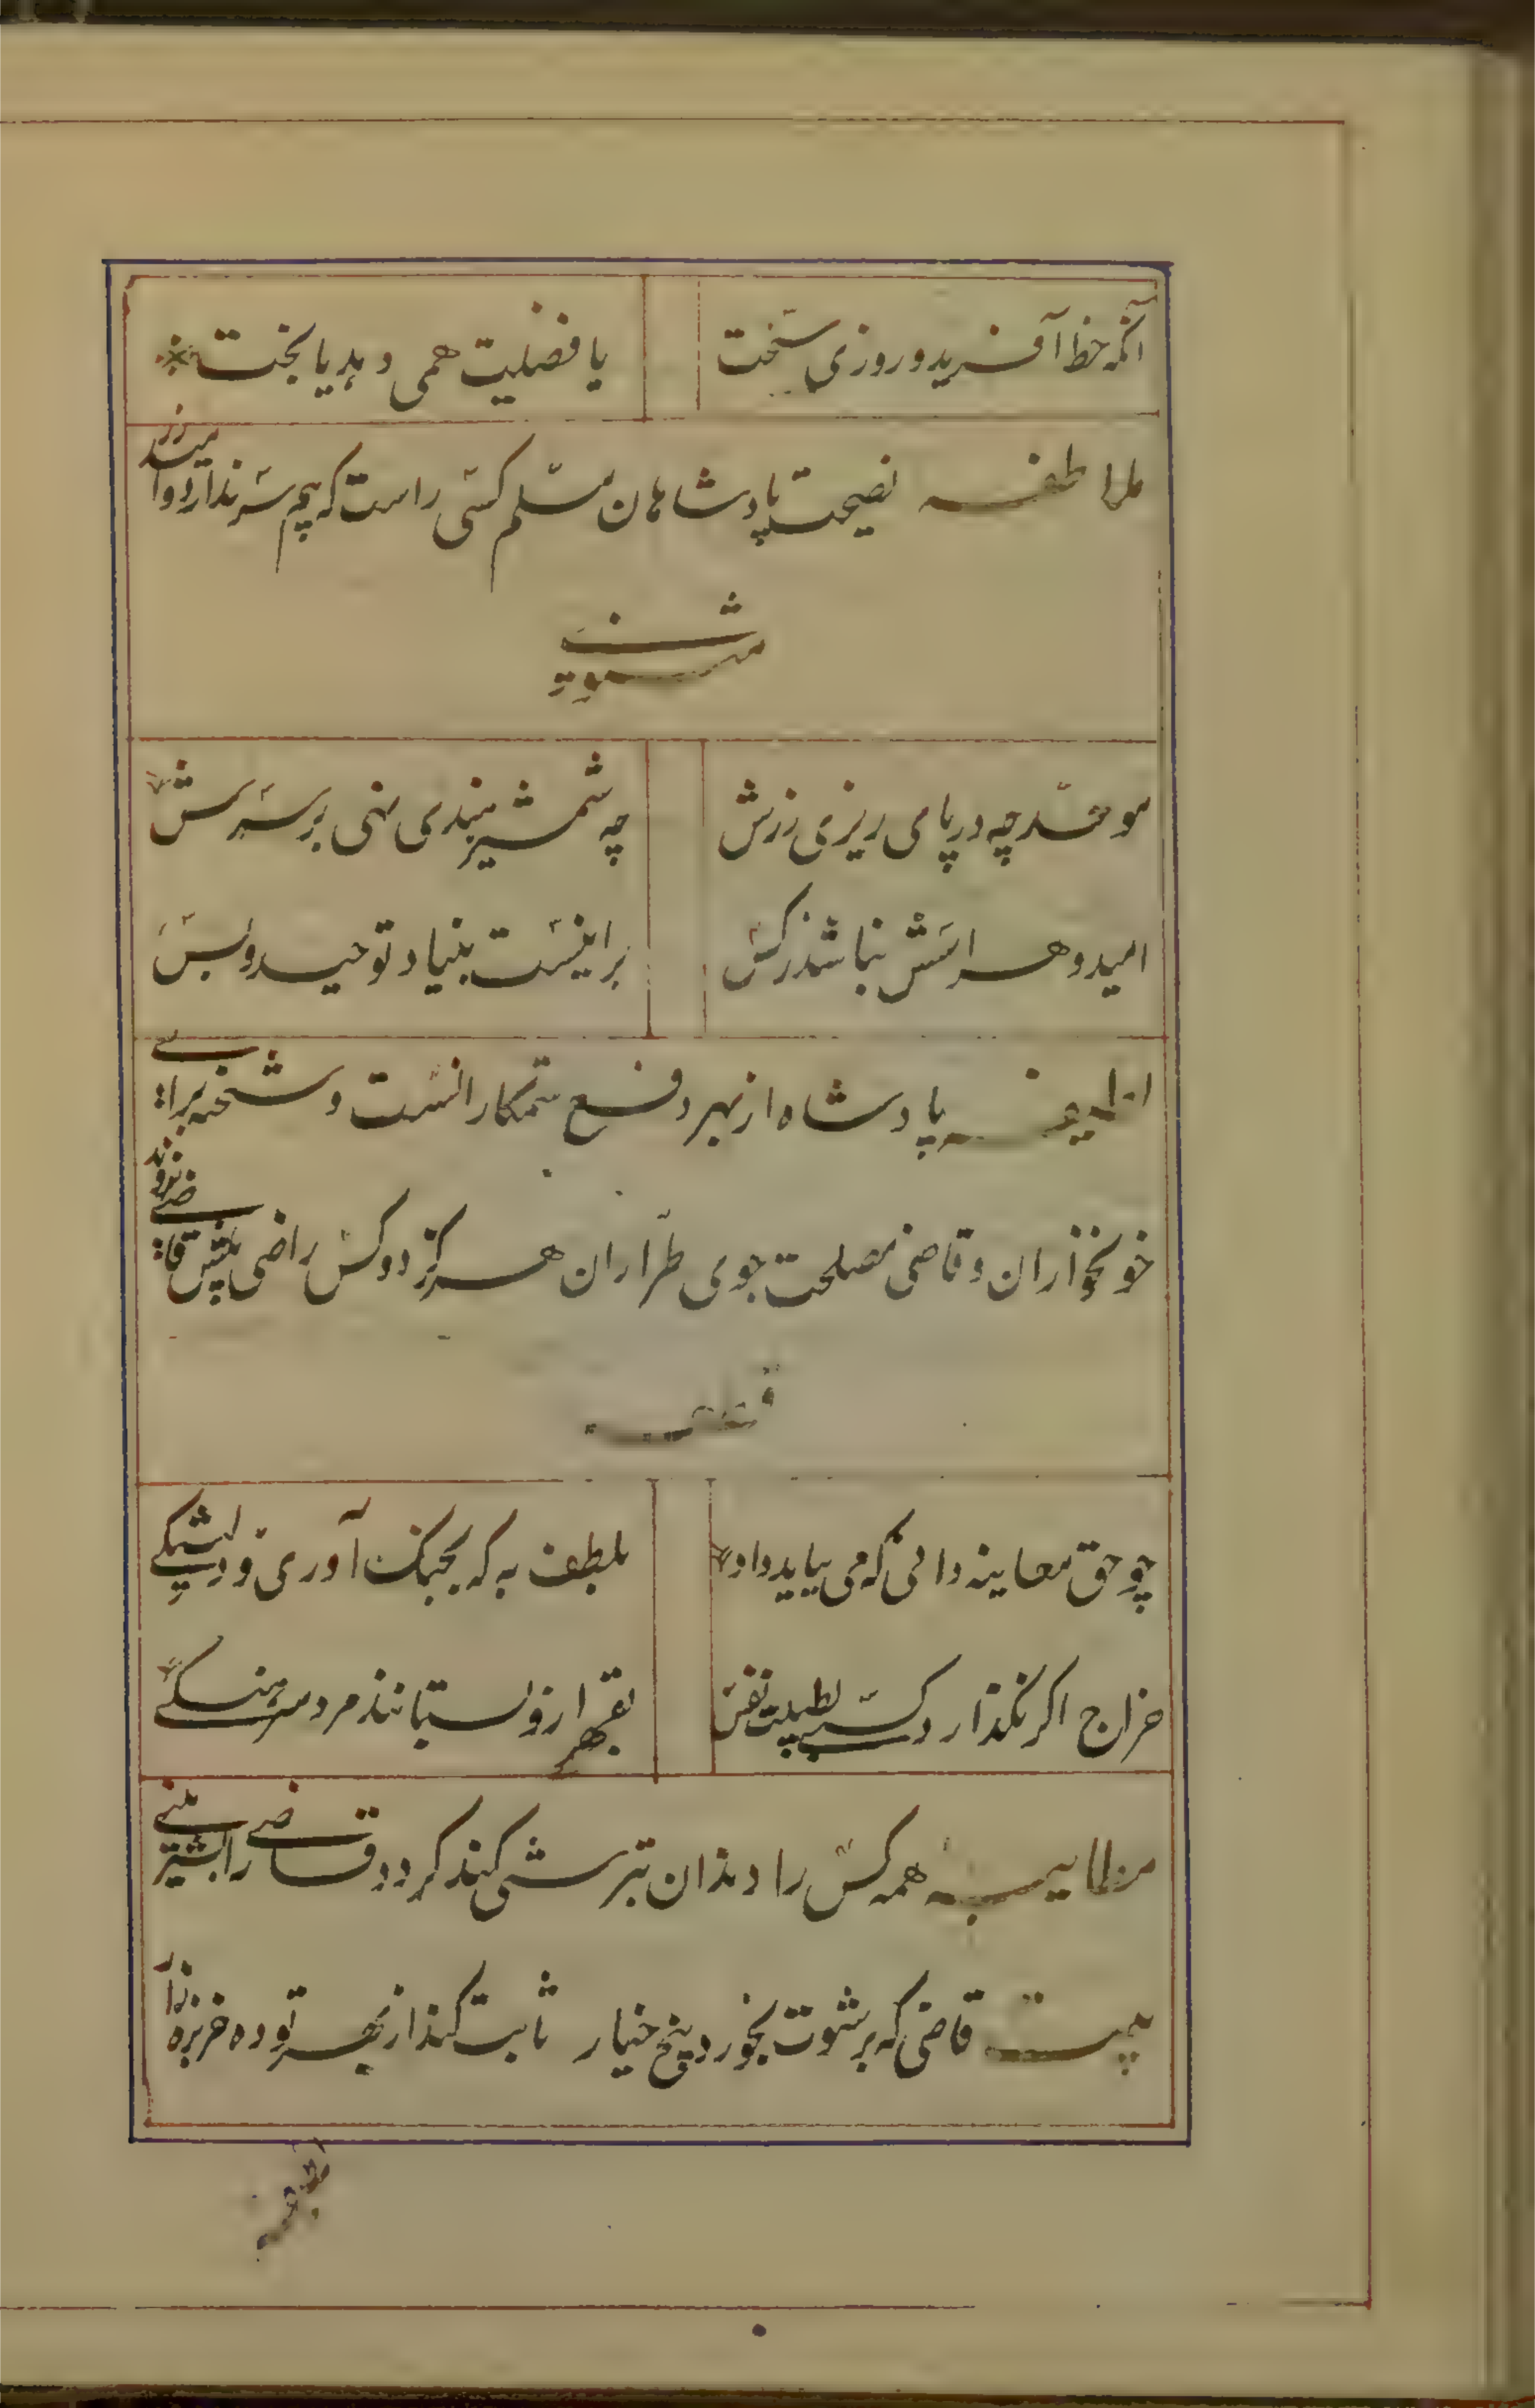 آنکه حظ آفرید و روزی سخت
یا فضلیت همی دهد یا بخت
ملاطفه نصیحت پادشاهان مسلم کسی راست که بیم سر ندارد و امید زر
مثنوی
موحد چه در پای ریزی زرش
چه شمشیر هندی نهی بر سرش
امید و هراسش نباشد ز کس
بر اینست بنیاد توحید و بس
لطیفه پادشاه از بهر دفع ستمکارانست و شحنه برای
خونخواران و قاضی مصلحت جوی طراران هرگز دو کس راضی پیش قاضی نروند
قطعه
چو حق معاینه دانی که می بباید داد
بلطف به که بجنگ آوری و دلتنگی
خراج اگر نگذارد کسی بطیبت نفس
بقهر ازو بستانند مرد سرهنگی
مطایبه همه کس را دندان بترشی کند گردد قاضی را بشیرینی
بیت قاضی که برشوت بخورد پنج خیار ثابت کند از بهر تو ده خربزه زار